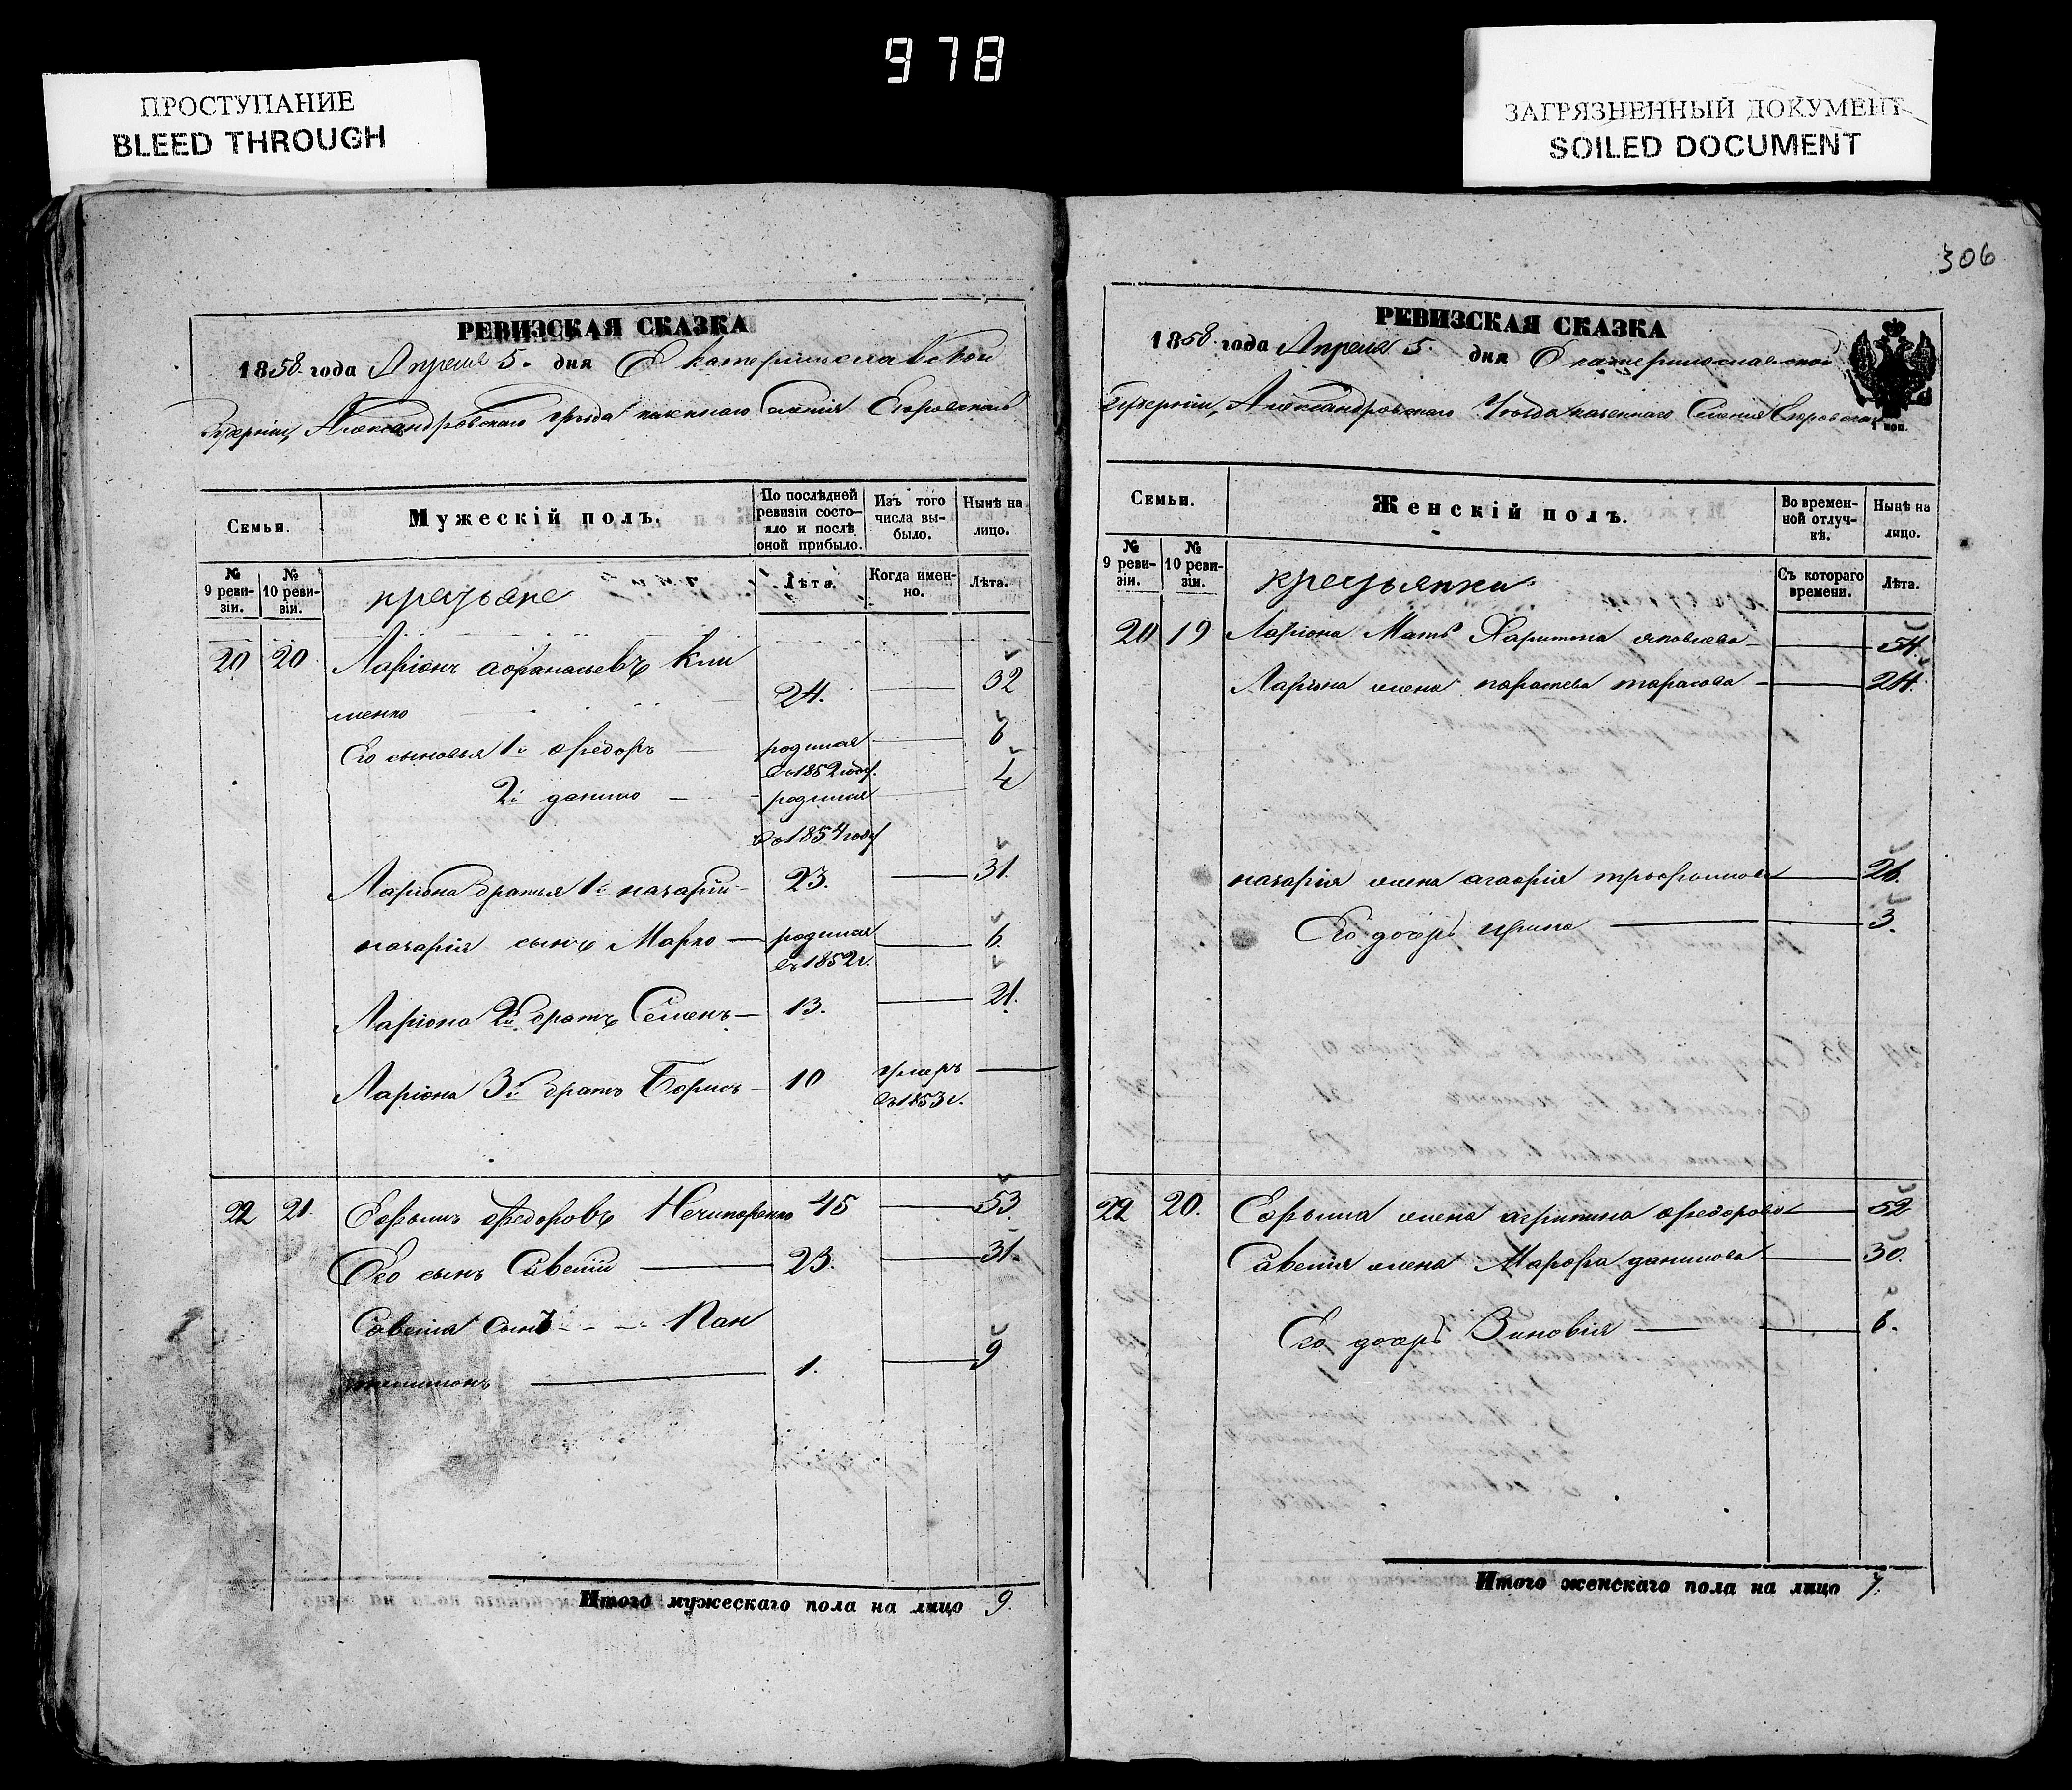 978
ПРОСТУПАНИЕ
BLEED THROUGH
ЗАГРЯЗНЕННЫЙ ДОКУМЕНТ
SOILED DOCUMENT
РЕВИЗСКАЯ СКАЗКА
1858 года Апреля 5. дня Екатеринославской
Губерніи, Александровского уезда казенного селенія Егоровского
Семьи.
Мужескій полъ.
По послѣдней ревизіи состояло и послѣ оной прибыло.
Изъ того числа выбыло.
Нынѣ на лицо.
№ 9 ревизіи.
№ 10 ревизіи.
крестьяне
Лѣта.
Когда именно.
Лѣта.
20 20 Ларіонъ афанасьевъ Кли
менко 24. 32
Его сыновья 1й Федоръ родился въ 1852 году. 6
2й данило родился въ 1854 году 4
Ларіона братья 1й назарій 23. 31.
назарія сынъ Марко родился въ 1852 г. 6.
Ларіона 2й братъ Семенъ 13. 21.
Ларіона 3й братъ Борисъ 10 умеръ въ 1853 г.
22 21. Ефимъ Федоровъ Нечипоренко 45 53.
Его сынъ Савелій 23. 31.
Савелія сынъ Пан
телимонъ 1. 9
Итого мужескаго пола на лицо 9.
306
РЕВИЗСКАЯ СКАЗКА
1858 года Апреля 5. дня Екатеринославской
Губерніи, Александровского Уезда казенного Селенія Егоровского
1 коп.
Семьи.
Женскій полъ.
Во временной отлучкѣ.
Нынѣ на лицо.
№ 9 ревизіи.
№ 10 ревизіи.
крестьянки
Съ котораго времени.
Лѣта.
20 19 Ларіона Мать Харитина яковлева 54.
Ларіона жена параскева тарасова 24.
назарія жена агафія трофимова 26.
Его дочерь ирина 3.
22 20. Ефима жена агрипина Федорова 52
Савелія жена Марфа данилова 30.
Его дочерь Зиновія 6.
Итого женскаго пола на лицо 7.